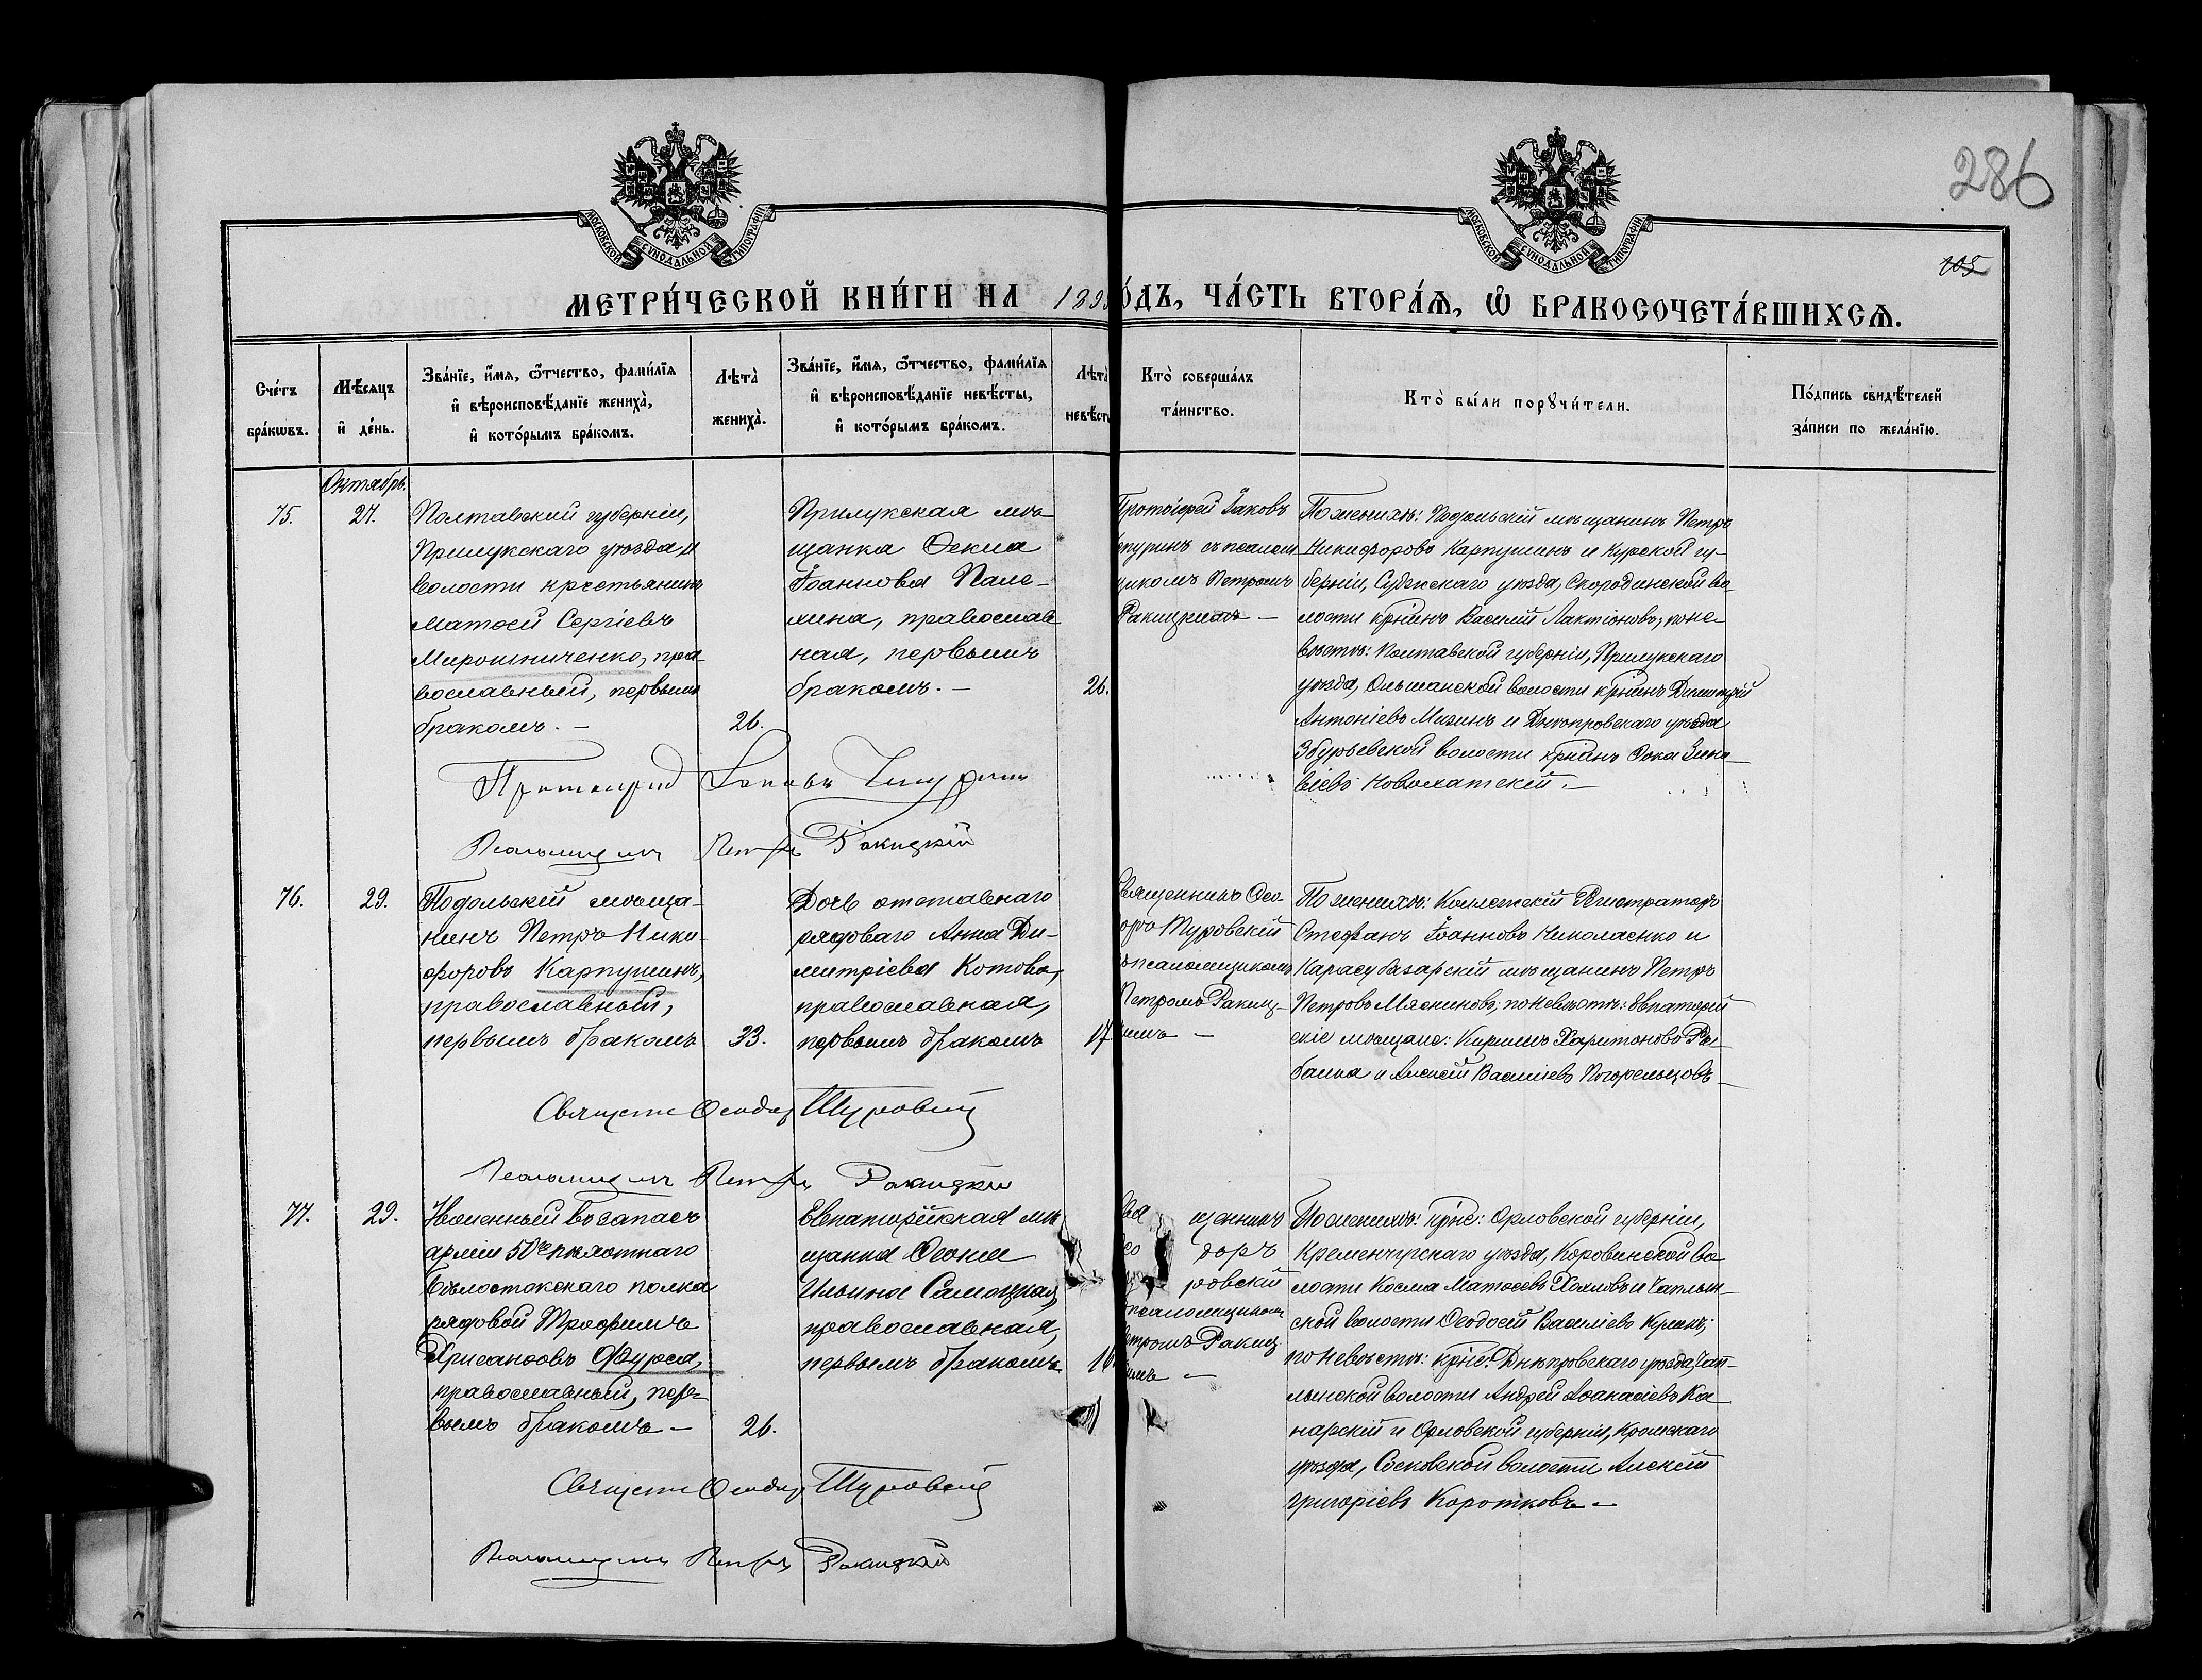 286
105
МОСКОВСКОЙ СѴНОДАЛЬНОЙ ТИПОГРАФІИ
МОСКОВСКОЙ СѴНОДАЛЬНОЙ ТИПОГРАФІИ
МЕТРИ́ЧЕСКОЙ КНИ́ГИ НА 189
О́ДЪ, ЧА́СТЬ ВТОРА́Ѧ, Ѡ҆ БРАКОСОЧЕТА́ВШИХСѦ.
Сче́тъ
бра́кѡвъ.
Мѣ́сяцъ
и҆ де́нь.
Зва́нїе, и҆́мя, ѻ҆́тчество, фами́лїя
и҆ вѣроисповѣ́данїе жениха̀,
и҆ кото́рымъ бра́комъ.
Лѣта̀
жениха̀.
Зва́нїе, и҆́мя, ѻ҆́тчество, фами́лїя
и҆ вѣроисповѣ́данїе невѣ́сты,
и҆ кото́рымъ бра́комъ.
Лѣта̀
невѣ́ст
Кто̀ соверша́лъ
та́инство.
Кто̀ бы́ли порꙋчи́тели.
По́дпись свидѣ́телей
за́писи по жела́нїю.
Октябрь.
75.
27.
Полтавской губерніи,
Прилукскаго уѣзда и
волости крестьянинъ
Матѳей Сергіевъ
Мирошниченко, пра-
вославный, первымъ
бракомъ. —
26.
Прилукская мѣ-
щанка Ѳекла
Іоаннова Пале-
хина, православ-
ная, первымъ
бракомъ. —
26.
Протоіерей Іаковъ
съ псалом
щикомъ Петромъ
Ракицкимъ —
По женихѣ: Подольскій мѣщанинъ Петръ
Никифоровъ Карпушинъ и Курской гу-
берніи, Суджскаго уѣзда, Скороднинской во-
лости кр҃нинъ Василій Лактіоновъ, по не-
вѣстѣ: Полтавской губерніи, Прилукскаго
уѣзда, Ольшанской волости кр҃нинъ Димитрій
Антоніевъ Мизинъ и Днѣпровскаго уѣзда
Збурьевской волости кр҃нинъ Ѳока Зино-
віевъ Новохатскій. —
Протоіерей Іаковъ
Псаломщикъ Петръ Ракицкій
76.
29.
Подольскій мѣща-
нинъ Петръ Ники-
форовъ Карпушинъ,
православный,
первымъ бракомъ
33.
Дочь отставнаго
рядоваго Анна Ди-
митріева Котова,
православная,
первымъ бракомъ
17
Священникъ Ѳео-
оръ Туровскій
псаломщикомъ
Петромъ Ракиц-
кимъ —
По женихѣ: Коллежскій Регистраторъ
Стефанъ Іоанновъ Николаенко и
Карасубазарскій мѣщанинъ Петръ
Петровъ Мясниковъ; по невѣстѣ: Евпаторій-
скіе мѣщане: Кириллъ Харитоновъ Ры-
балка и Алексѣй Василіевъ Погорельцовъ
Священ Ѳеодор Туровскій
Псаломщикъ Петръ Ракицкій
77.
29.
Уволенный въ запасъ
арміи 50го пѣхотнаго
Бѣлостокскаго полка
рядовой Трофимъ
Хрисанфовъ Фурса,
православный, пер-
вымъ бракомъ —
26.
Евпаторійская мѣ
щанка Ѳеокла
Ильина Самоцкая,
православная,
первымъ бракомъ
16
щенникъ
доръ
ровскій
псаломщикомъ
етромъ Ракиц
имъ —
По женихѣ: кр҃не: Орловской губерніи,
Кременчугскаго уѣзда, Коровинской во-
лости Косма Матѳеевъ Хохловъ и Чаплын-
ской волости Ѳеодосій Василіевъ
по невѣстѣ: кр҃не: Днѣпровскаго уѣзда, Чап-
лынской волости Андрей Аѳанасіевъ Ка-
нарскій и Орловской губерніи, Кромскаго
уѣзда, Сосковской волости Алексѣй
Григоріевъ Коротковъ —
Священ Ѳеодор Туровскій
Псаломщикъ Петръ Ракицкій